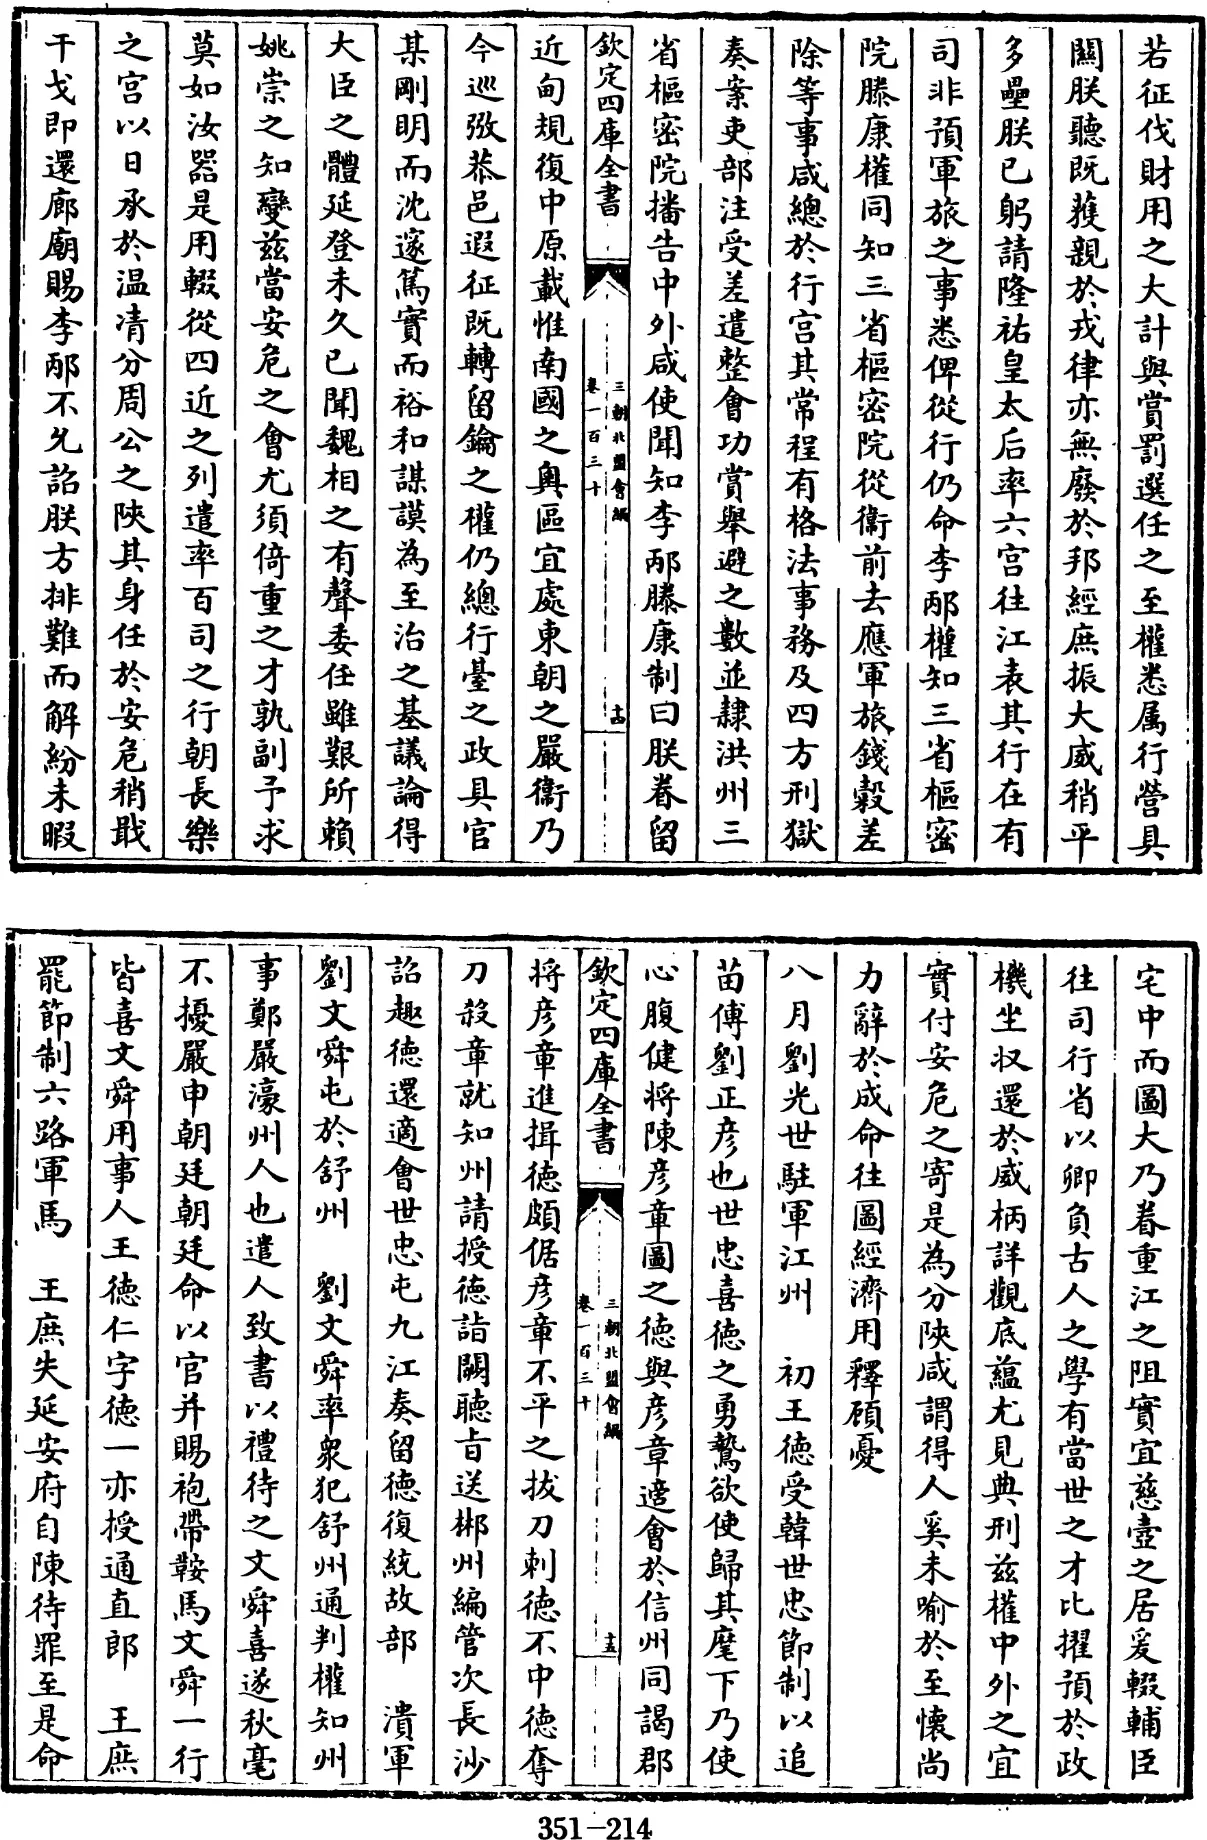 若征伐財用之大計與賞罰選任之至權悉属行營具
關朕聽既蒦親於戎律亦無廢於邦經庶振大威稍平
多壘朕已躬請隆祐皇太后率六宫往江表其行在有
司非預軍旅之事悉俾從行仍命李邴權知三省樞密
院滕康權同知三省樞密院從衛前去應軍旅錢糓差
除等事咸總於行宫其常程有格法事務及四方刑獄
奏案吏部注受差遣整會功賞舉避之數並隷洪州三
省樞密院播告中外咸使聞知李邴滕康制曰朕眷留
欽定四庫全書
三朝北盟會編
卷一百三十
十四
近甸規復中原載惟南國之奥區宜處東朝之嚴衛乃
今巡弥恭邑遐征既轉留鑰之權仍總行臺之政具官
某剛明而沈邃篤實而裕和謀謨為至治之基議論得
大臣之體延登未久已聞魏相之有聲委任雖艱所賴
姚崇之知變兹當安危之會尤須倚重之才孰副予求
莫如汝器是用輟從四近之列遣率百司之行朝長樂
之宫以日承於温凊分周公之陜其身任於安危稍戢
干戈即還廊廟賜李邴不允詔朕方排難而解紛未暇
宅中而圖大乃眷重江之阻實宜慈壼之居爰輟輔臣
往司行省以卿負古人之學有當世之才比擢預於政
機坐収還於威柄詳觀底藴尤見典刑兹權中外之宜
實付安危之寄是為分陜咸謂得人奚未喻於至懷尚
力辭於成命往圖經濟用釋顧憂
八月劉光世駐軍江州　初王德受韓世忠節制以追
苗傅劉正彦也世忠喜德之勇鷙欲使歸其麾下乃使
心腹健將陳彦章圖之德與彦章遶會於信州同謁郡
欽定四庫全書
三朝北盟會編
卷一百三十
十五
將彦章進揖德頗倨彦章不平之拔刀刺德不中德奪
刀殺章就知州請授德詣闕聽㫖送郴州編管次長沙
詔趣德還適會世忠屯九江奏留德復統故部　潰軍
劉文舜屯於舒州　劉文舜率衆犯舒州通判權知州
事鄭嚴濠州人也遣人致書以禮待之文舜喜遂秋毫
不擾嚴申朝廷朝廷命以官并賜袍帶鞍馬文舜一行
皆喜文舜用事人王德仁字德一亦授通直郎　王庶
罷節制六路軍馬　王庶失延安府自陳待罪至是命
351-214